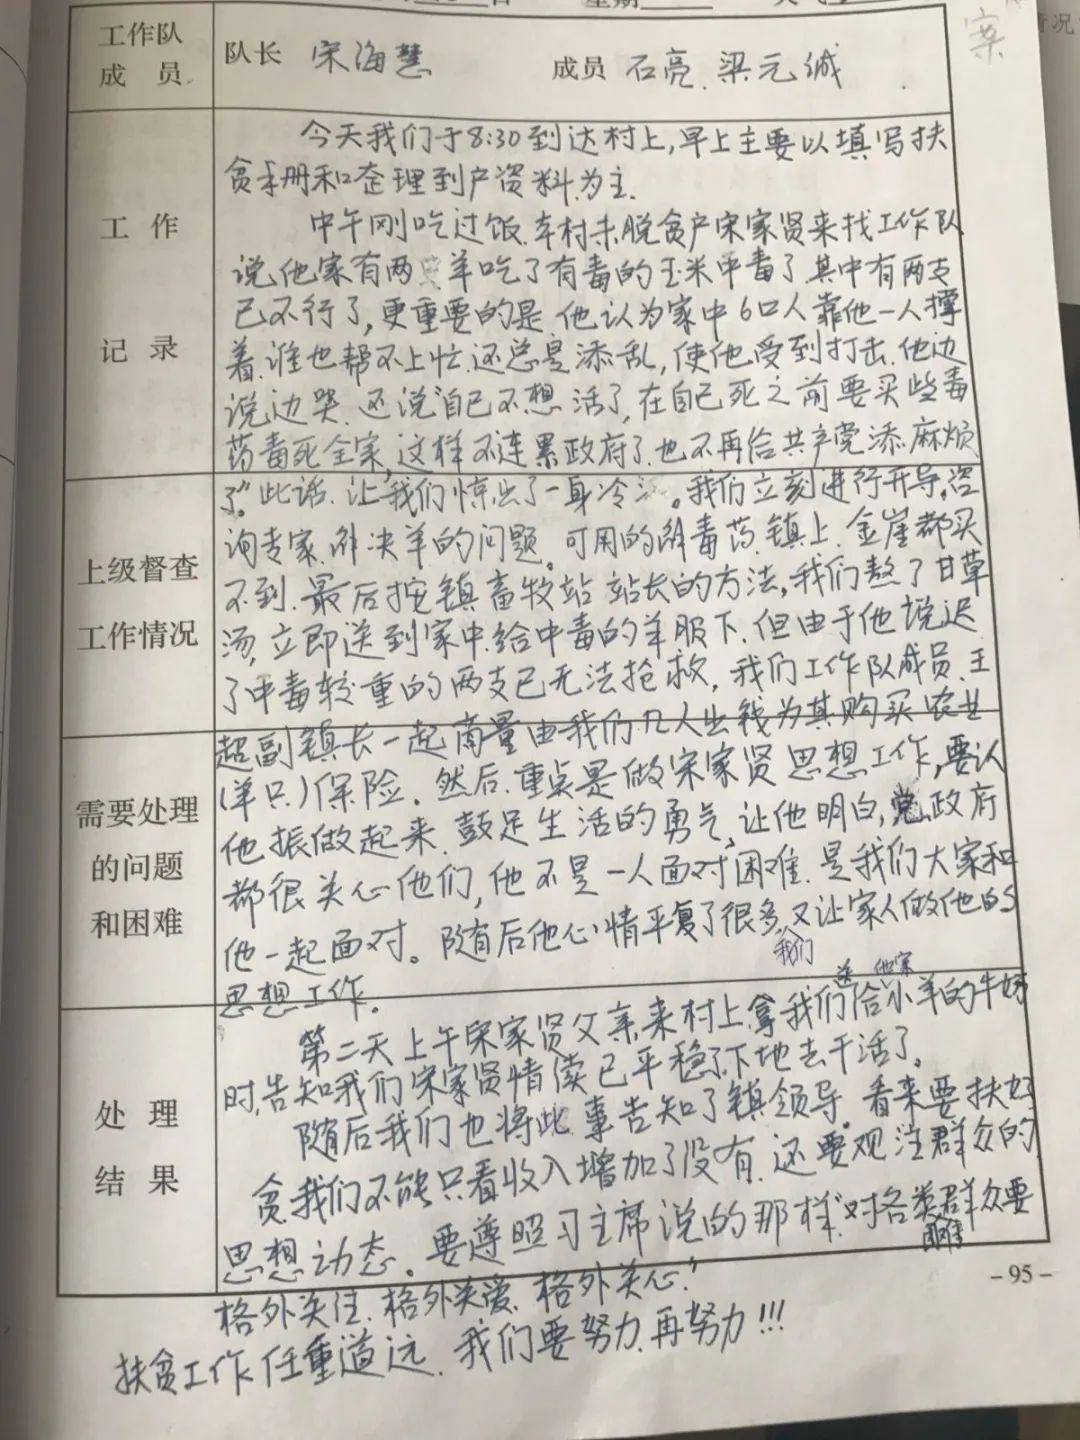 案
情况
工作队
成员
队长 宋海慧 成员 石亮、梁元诚
工作
记录
今天我们于8:30到达村上,早上主要以填写扶
贫手册和整理到户资料为主.
中午刚吃过饭.本村未脱贫户宋家贤来找工作队
说他家有两只羊吃了有毒的玉米中毒了.其中有两支
已不行了,更重要的是.他认为家中6口人靠他一人撑
着.谁也帮不上忙.还总是添乱,使他受到打击.他边
说边哭.还说“自己不想活了,在自己死之前要买些毒
药毒死全家,这样不连累政府了.也不再给共产党添麻烦
上级督查
工作情况
了”.此话.让我们惊出了一身冷汗。我们立刻进行开导,咨
询专家.解决羊的问题。可用的解毒药.镇上.金崖都买
不到.最后按镇畜牧站站长的方法,我们熬了甘草
汤,立即送到家中.给中毒的羊服下.但由于他说迟
了中毒较重的两支已无法抢救,我们工作队成员.王
需要处理
的问题
和困难
超副镇长一起商量由我们几人出钱为其购买农业
(羊只)保险.然后.重点是做宋家贤思想工作,要认
他振做起来.鼓足生活的勇气,让他明白,党政府
都很关心他们,他不是一人面对困难.是我们大家和
他一起面对。随后他心情平复了很多,又让家人做他的
我们
思想工作.
处理
结果
送 他家
第二天上午宋家贤父亲来村上拿我们给小羊的牛奶
时,告知我们宋家贤情绪已平稳了.下地去干活了。
随后我们也将此事告知了镇领导。看来要扶好
贫.我们不能只看收入增加了没有.还要观注群众的
思想动态。要遵照习主席说的那样“对各类群众要
困难
格外关注.格外关爱.格外关心.”
扶贫工作任重道远.我们要努力.再努力!!!
-95-